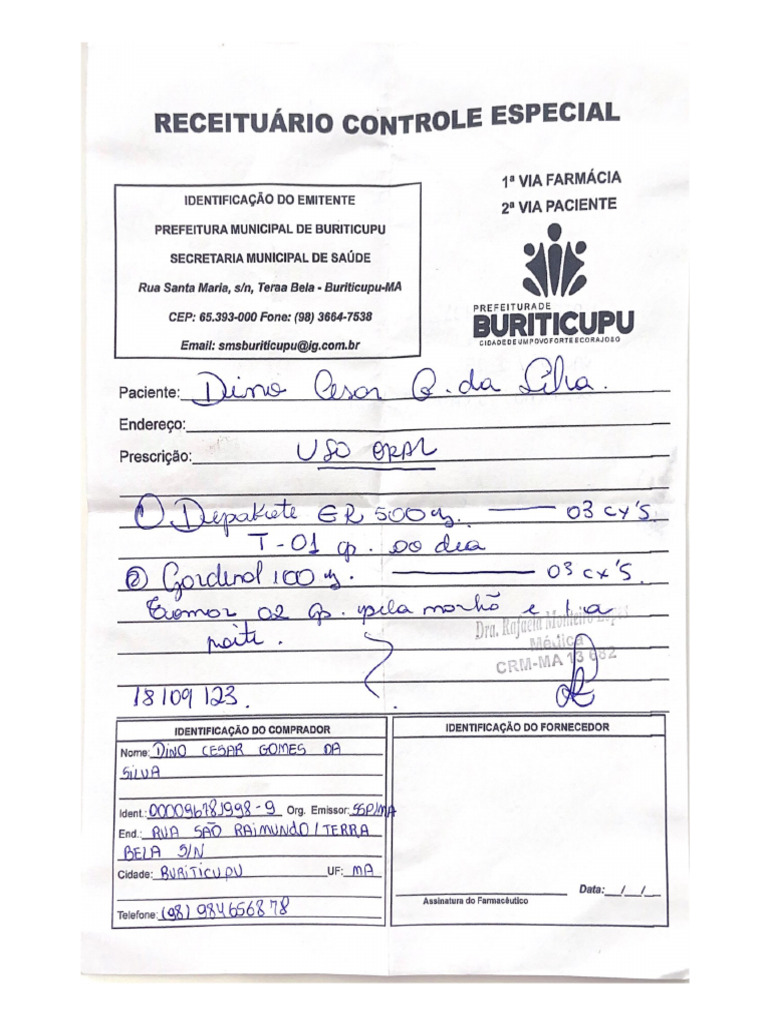 RECEITUÁRIO CONTROLE ESPECIAL
1ª VIA FARMÁCIA
2ª VIA PACIENTE
IDENTIFICAÇÃO DO EMITENTE
PREFEITURA MUNICIPAL DE BURITICUPU
SECRETARIA MUNICIPAL DE SAÚDE
Rua Santa Maria, s/n, Teraa Bela - Buriticupu-MA
CEP: 65.393-000 Fone: (98) 3664-7538
Email: smsburiticupu@ig.com.br
PREFEITURA DE
BURITICUPU
CIDADE DE UM POVO FORTE E CORAJOSO
Paciente: Dino Cesar G. da Silva.
Endereço:
Prescrição: USO ORAL
1) Depakote ER 500mg. 03 cx's.
T-01 cp. ao dia
2) Gardenal 100mg. 03 cx's.
Tomar 02 cp. pela manhã e 1 a
noite.
Dra. Rafaela Monteiro
Médica
CRM-MA 13 682
18/09/23.
IDENTIFICAÇÃO DO COMPRADOR
Nome: DINO CESAR GOMES DA
SILVA
Ident.: 000096781998-9 Org. Emissor: SSP/MA
End.: RUA SÃO RAIMUNDO/TERRA
BELA S/N
Cidade: BURITICUPU UF: MA
Telefone: (98) 984656878
IDENTIFICAÇÃO DO FORNECEDOR
Data: __/__/__
Assinatura do Farmacêutico